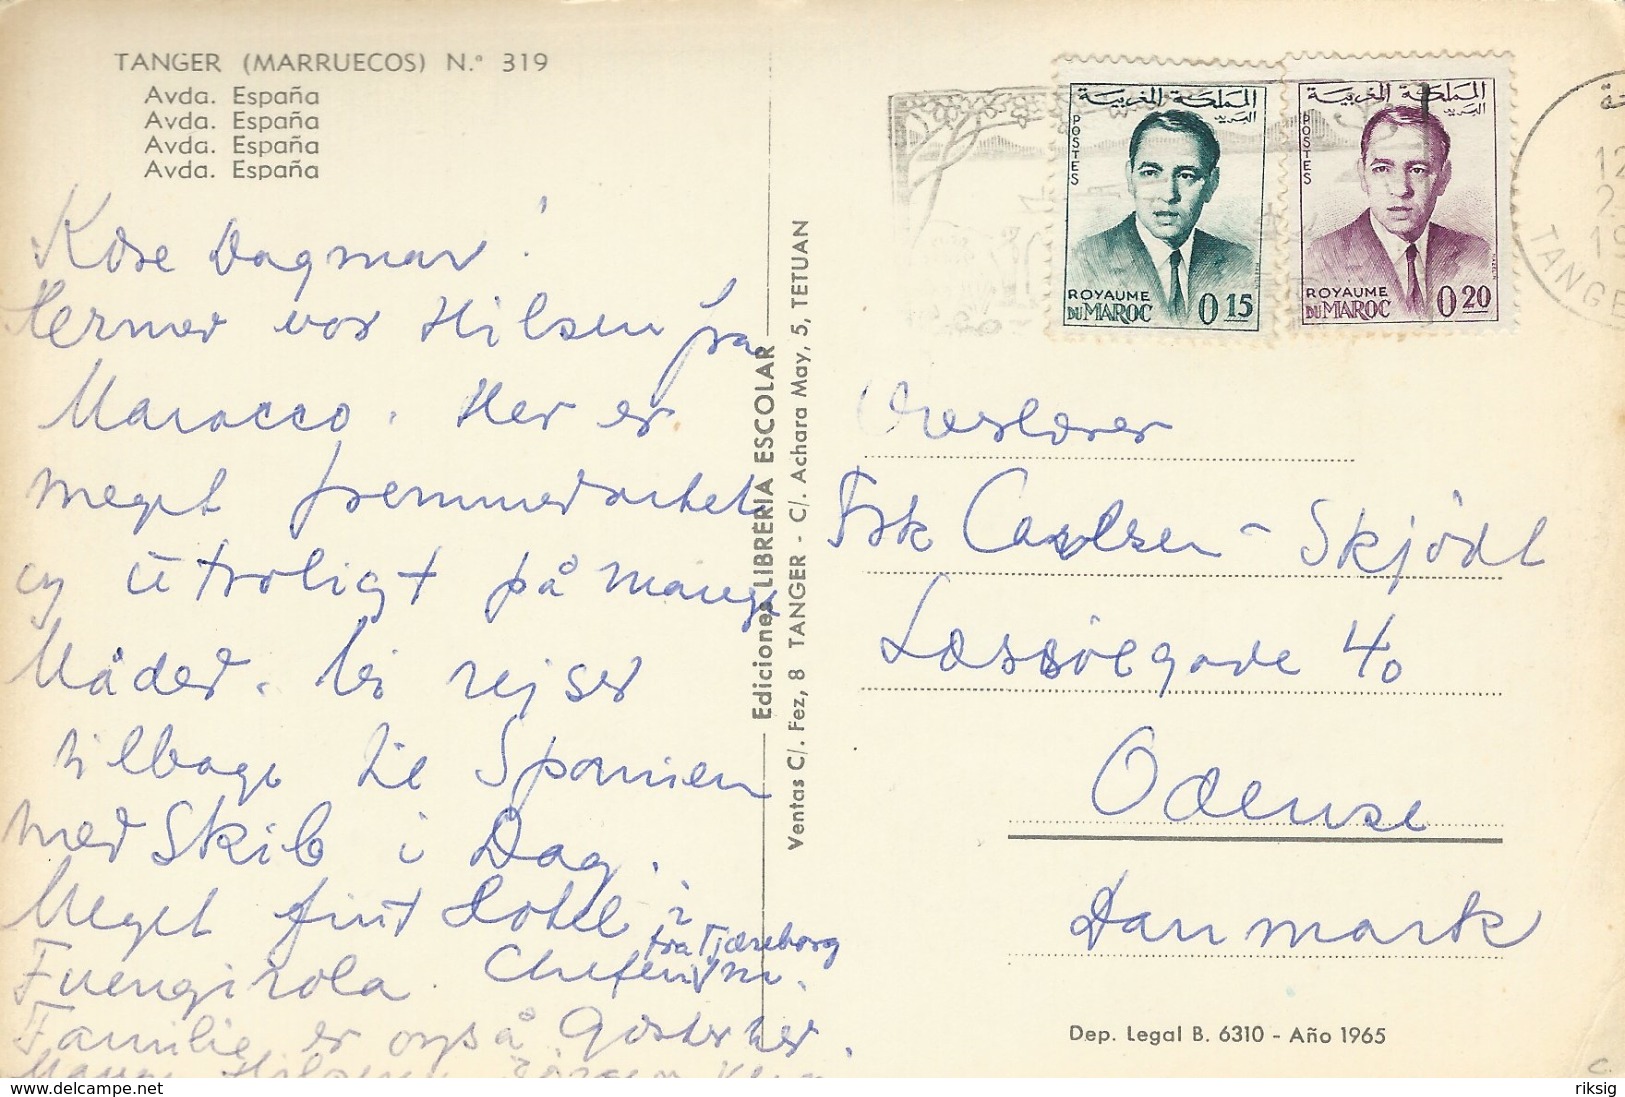 TANGER (MARRUECOS) N.º 319
Avda. España
Avda. España
Avda. España
Avda. España
Kære Dagmar!
Hermed vor Hilsen fra
Marocco. Her er
meget fremmedartet
og utroligt på mange
Måder. Vi rejser
tilbage til Spanien
med Skib i Dag.
Meget fint Hotel i
Fuengirola. Chefen
fra Tjæreborg
Familie er også Gæster her.
Mange Hilsener Jörgen
Ediciones LIBRERIA ESCOLAR
Ventas C/. Fez, 8 TANGER - C/. Achara May, 5, TETUAN
المملكة المغربية
البريد
POSTES
ROYAUME
DU MAROC 0 15
المملكة المغربية
البريد
POSTES
ROYAUME
DU MAROC 0 20
12
2
19
TANGE
Overlærer
Frk Carlsen - Skjödt
Læssöegade 40
Odense
Danmark
Dep. Legal B. 6310 - Año 1965
www.delcampe.net
riksig